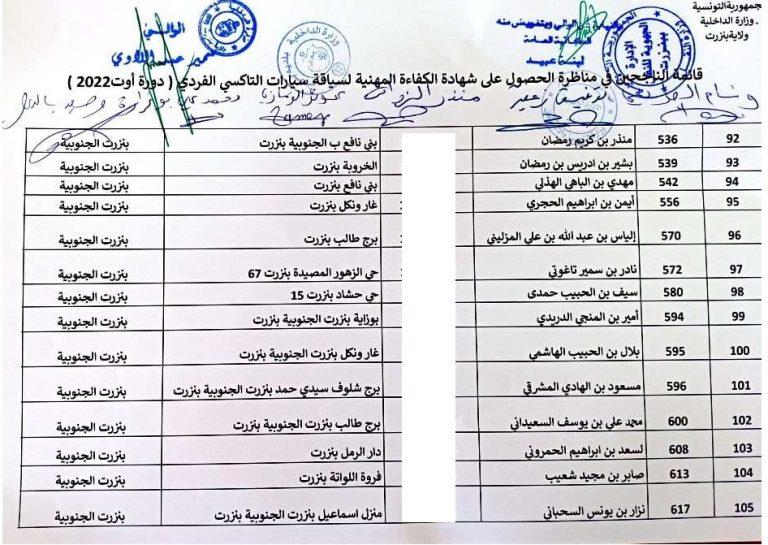 جمهورية التونسية
وزارة الداخلية
ولاية بنزرت
الوالي وبتفويض منه
العامة
عبيد
الوالي
وزارة الداخلية
قائمة الناجحين في مناظرة الحصول على شهادة الكفاءة المهنية لسياقة سيارات التاكسي الفردي ( دورة أوت2022 )
92 536 منذر بن كريم رمضان بني نافع ب الجنوبية بنزرت بنزرت الجنوبية
93 539 بشير بن ادريس بن رمضان الخروبة بنزرت بنزرت الجنوبية
94 542 مهدي بن الباهي الهذلي بني نافع بنزرت بنزرت الجنوبية
95 556 أيمن بن ابراهيم الحجري غار ونكل بنزرت بنزرت الجنوبية
96 570 إلياس بن عبد الله بن علي المزليني برج طالب بنزرت بنزرت الجنوبية
97 572 نادر بن سمير تاغوتي حي الزهور المصيدة بنزرت 67 بنزرت الجنوبية
98 580 سيف بن الحبيب حمدى حي حشاد بنزرت 15 بنزرت الجنوبية
99 594 أمير بن المنجي الدريدي بوزاية بنزرت الجنوبية بنزرت بنزرت الجنوبية
100 595 بلال بن الحبيب الهاشمي غار ونكل بنزرت الجنوبية بنزرت بنزرت الجنوبية
101 596 مسعود بن الهادي المشرقي برج شلوف سيدي حمد بنزرت الجنوبية بنزرت بنزرت الجنوبية
102 600 محمد علي بن يوسف السعيداني برج طالب بنزرت الجنوبية بنزرت بنزرت الجنوبية
103 608 لسعد بن ابراهيم الحمروني دار الرمل بنزرت بنزرت الجنوبية
104 613 صابر بن مجيد شعيب فروة اللواتة بنزرت بنزرت الجنوبية
105 617 نزار بن يونس السحباني منزل اسماعيل بنزرت الجنوبية بنزرت بنزرت الجنوبية